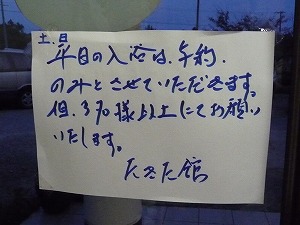 土、日
平日の入店は、予約
のみとさせていただきます。
但、3名様以上にてお願い
いたします。
たきた館